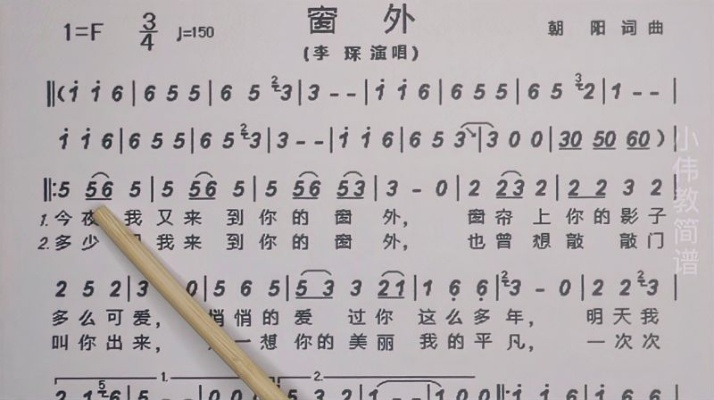 窗 外
1=F 3/4 ♩=150 朝 阳 词 曲
(李 琛演唱)
‖(i i 6 | 6 5 5 | 6 5 3 | 3 - - | i i 6 | 6 5 5 | 6 5 2 | 1 - - |
i i 6 | 6 5 5 | 6 5 3 | 3 - - | i i 6 | 6 5 3 | 3 0 0 | 30 50 60 )|
‖:5 56 5 | 5 56 5 | 5 56 53 | 3 - 0 | 2 23 2 | 2 2 3 2
1.今夜 我又来 到你的 窗 外, 窗帘 上你的影子
2.多少 我来 到你的 窗 外, 也曾 想敲 敲门
2 5 2 | 3 0 | 5 6 5 | 5 3 3 21 | 1 6 6 | 3 - 0 | 2 2 3 |
多么可爱, 悄悄的爱 过你 这么多年, 明天我
叫你出来, 一想 你的美丽 我的平凡, 一次次
1. 2.
小伟教简谱